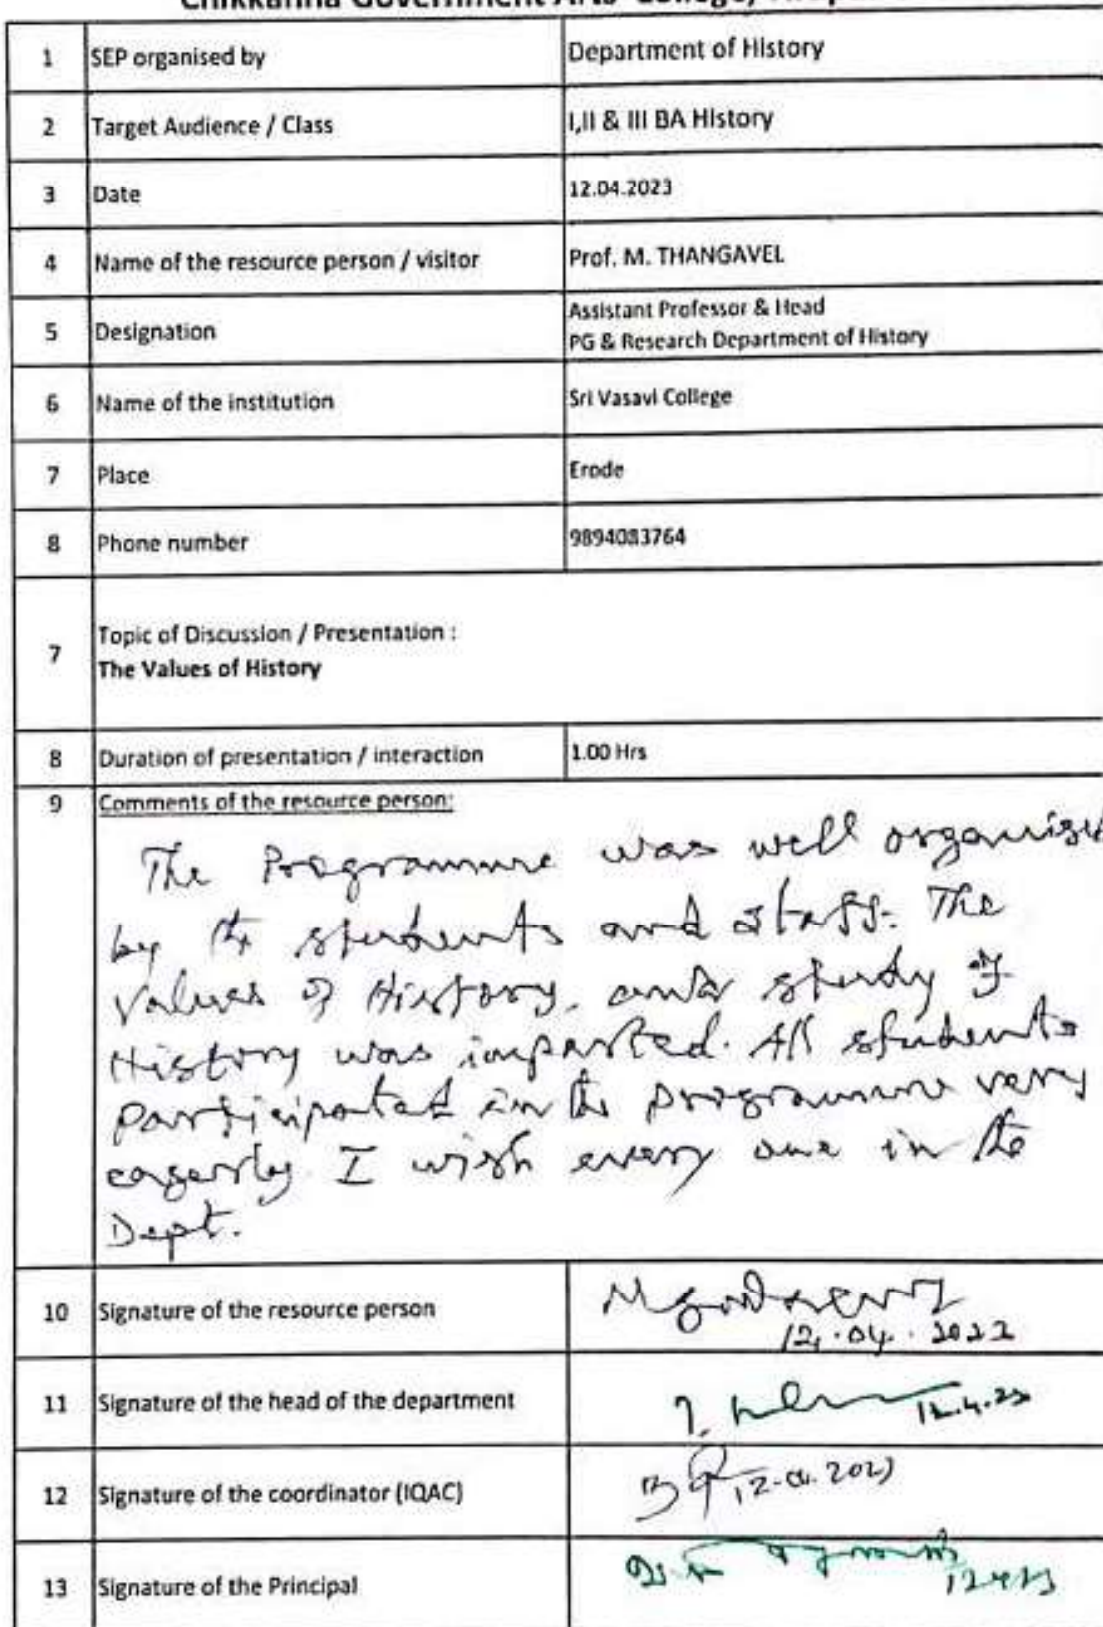 Chikkanna Government Arts College,
1 SEP organised by Department of History
2 Target Audience / Class I,II & III BA History
3 Date 12.04.2023
4 Name of the resource person / visitor Prof. M. THANGAVEL
5 Designation Assistant Professor & Head
PG & Research Department of History
6 Name of the institution Sri Vasavi College
7 Place Erode
8 Phone number 9894083764
7 Topic of Discussion / Presentation :
The Values of History
8 Duration of presentation / interaction 1.00 Hrs
9 Comments of the resource person:
The Programme was well organised
by the students and staff. The
Values of History, and study of
History was imparted. All students
participated in the programme very
eagerly I wish every one in the
Dept.
10 Signature of the resource person
12.04.2023
11 Signature of the head of the department 12.4.23
12 Signature of the coordinator (IQAC) 12.04.2023
13 Signature of the Principal